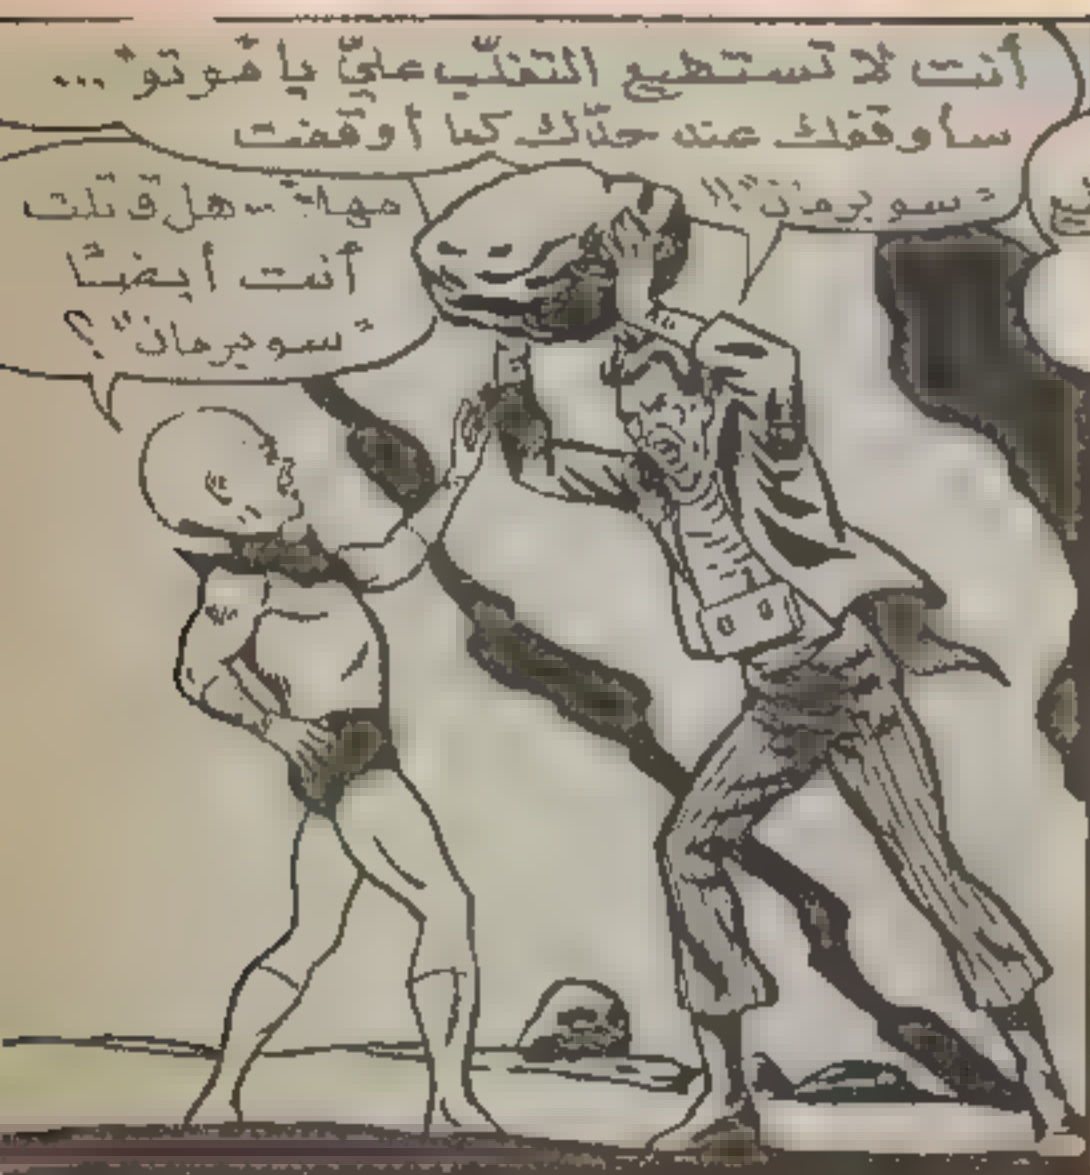 أنت لا تستطيع التغلّب عليّ يا فوتو" ...
سأوقفك عند حدّك كما أوقفت
"سوبرمان"!!
مهلاً - هل قتلت
أنت أيضًا
"سوبرمان"؟